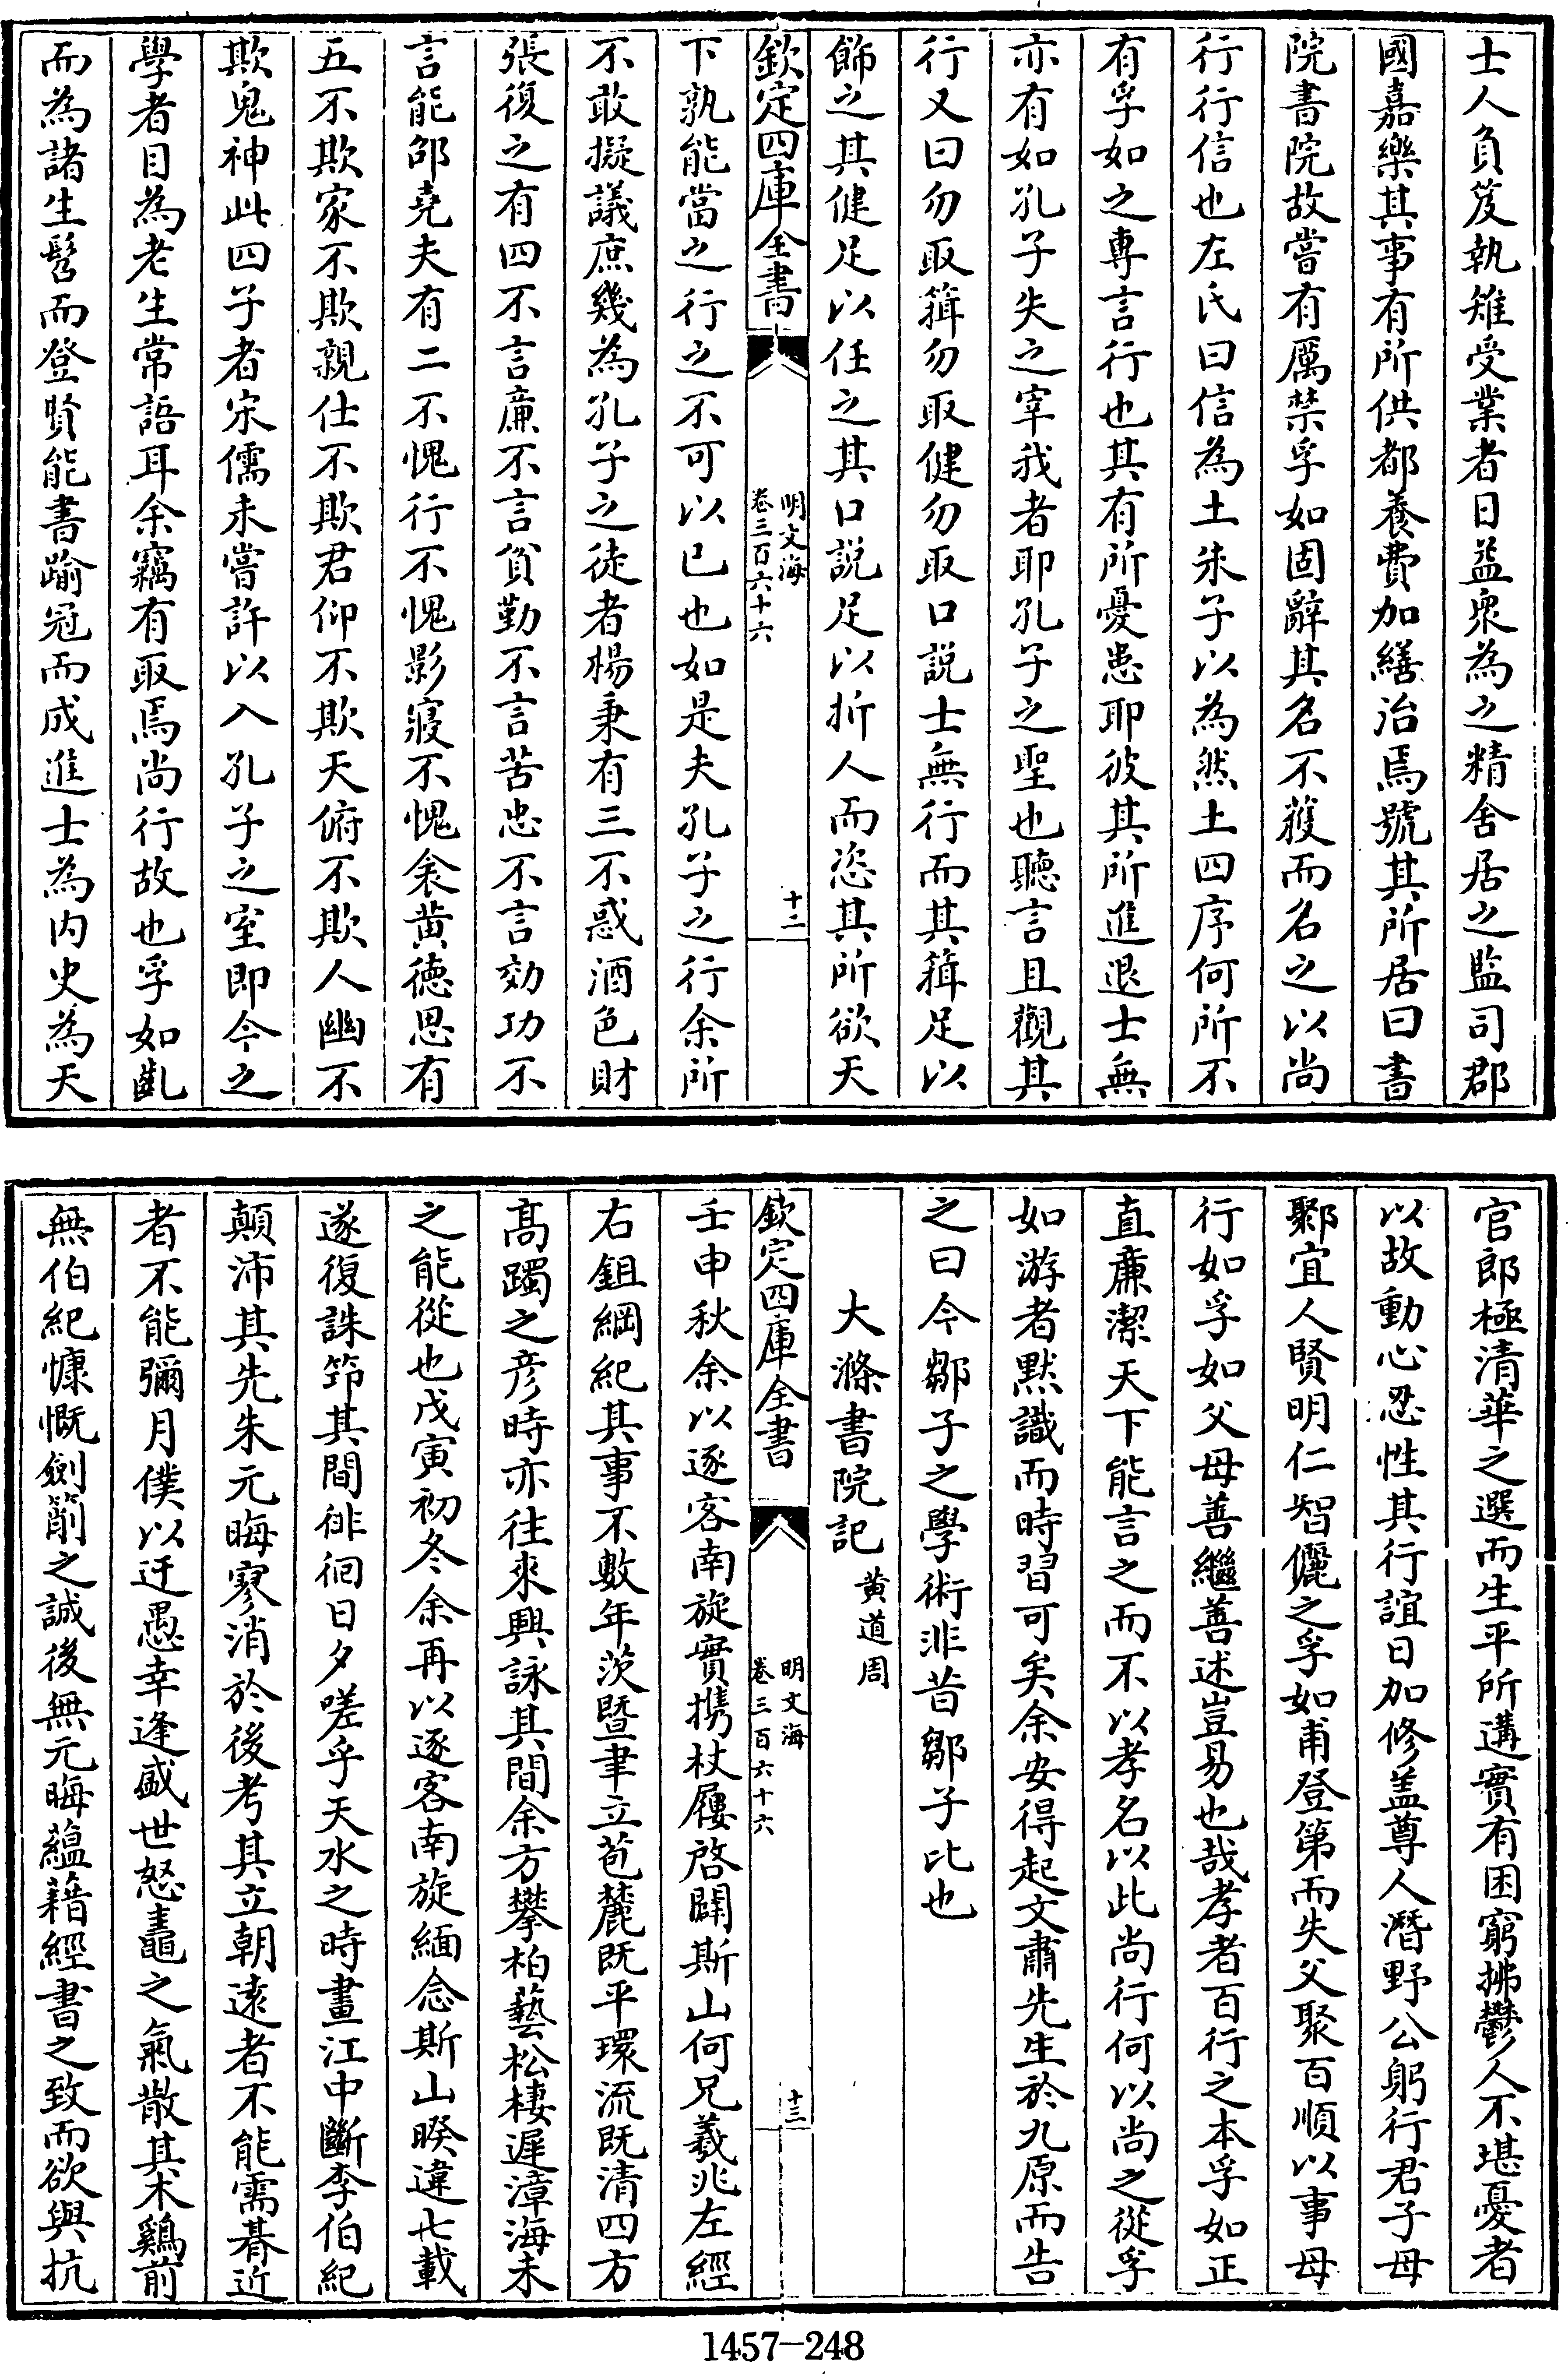 士人負笈執雉受業者日益衆為之精舍居之監司郡
國嘉樂其事有所供都養費加繕治焉號其所居曰書
院書院故嘗有厲禁孚如固辭其名不獲而名之以尚
行行信也左氏曰信為土朱子以為然土四序何所不
有孚如之專言行也其有所憂患耶彼其所進退士無
亦有如孔子失之宰我者耶孔子之聖也聽言且觀其
行又曰勿取箝勿取健勿取口說士無行而其箝足以
飾之其健足以任之其口說足以折人而恣其所欲天
欽定四庫全書
明文海
卷三百六十六
十二
下孰能當之行之不可以已也如是夫孔子之行余所
不敢擬議庶幾為孔子之徒者楊秉有三不惑酒色財
張復之有四不言亷不言貧勤不言苦忠不言効功不
言能邵堯夫有二不愧行不愧影寢不愧衾黄徳思有
五不欺家不欺親仕不欺君仰不欺天俯不欺人幽不
欺鬼神此四子者宋儒未嘗許以入孔子之室即令之
學者目為老生常語耳余竊有取焉尚行故也孚如齓
而為諸生髫而登賢能書踰冠而成進士為内史為天
官郎極清華之選而生平所遘實有困窮拂鬱人不堪憂者
以故動心忍性其行誼日加修盖尊人潛野公躬行君子母
鄹宜人賢明仁智儷之孚如甫登第而失父聚百順以事母
行如孚如父母善繼善述豈易也哉孝者百行之本孚如正
直亷潔天下能言之而不以孝名以此尚行何以尚之從孚
如游者默識而時習可矣余安得起文肅先生於九原而告
之曰今鄒子之學術非昔鄒子比也
大滌書院記 黄道周
欽定四庫全書
明文海
卷三百六十六
十三
壬申秋余以逐客南旋實携杖屨啓闢斯山何兄羲兆左經
右鉏綱紀其事不數年茨暨聿立芑麓既平環流既清四方
髙躅之彦時亦往來興詠其間余方攀柏藝松棲遲漳海未
之能從也戊寅初冬余再以逐客南旋緬念斯山睽違七載
遂復誅茆其間徘徊日夕嗟乎天水之時畫江中斷李伯紀
顛沛其先朱元晦寥消於後考其立朝逺者不能需朞近
者不能彌月僕以迂愚幸逢盛世怒鼃之氣散其木鷄前
無伯紀慷慨劍箾之誠後無元晦蘊藉經書之致而欲與抗
1457-248